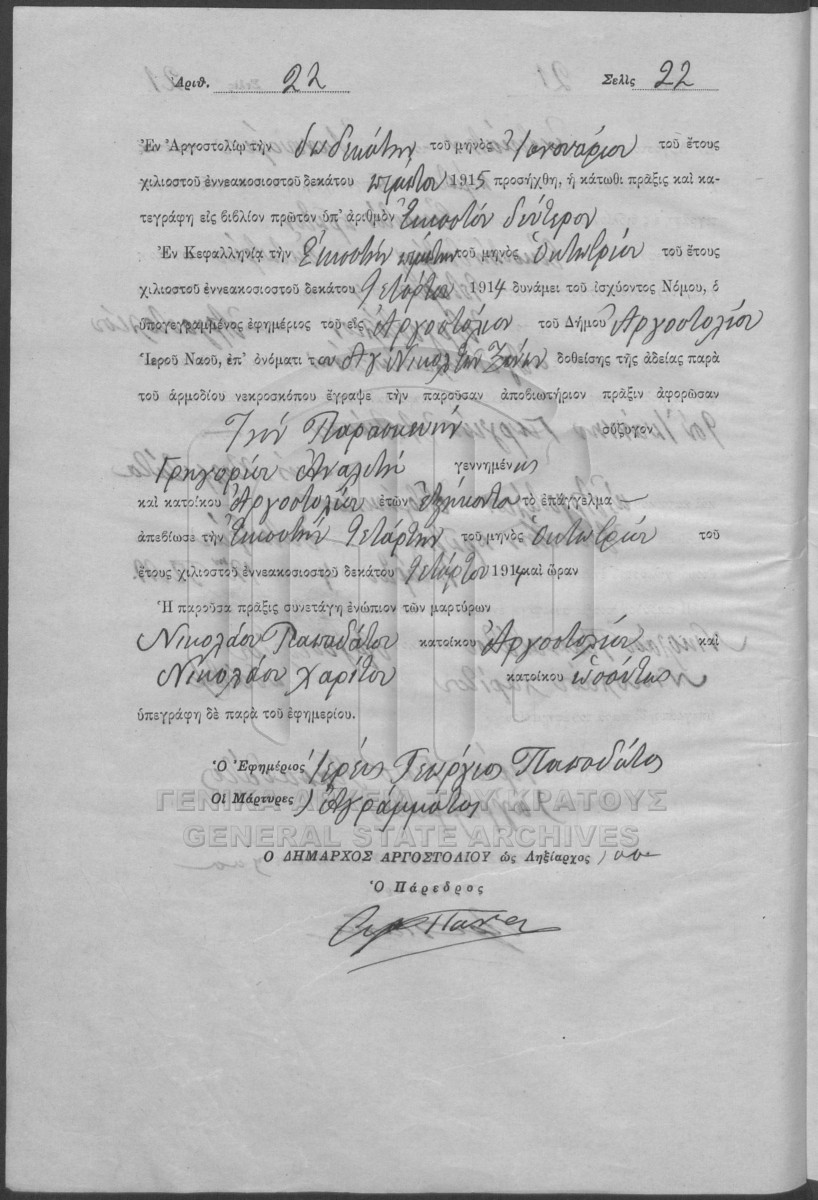 Ἀριθ. 22 Σελὶς 22
Ἐν Ἀργοστολίῳ τὴν δωδεκάτην τοῦ μηνὸς Ἰανουαρίου τοῦ ἔτους
χιλιοστοῦ ἐννεακοσιοστοῦ δεκάτου πέμπτου 1915 προσήχθη, ἡ κάτωθι πρᾶξις καὶ κα-
τεγράφη εἰς βιβλίον πρῶτον ὑπ' ἀριθμὸν Εἰκοστόν δεύτερον
Ἐν Κεφαλληνίᾳ τὴν Εἰκοστήν τοῦ μηνὸς Ὀκτωβρίου τοῦ ἔτους
χιλιοστοῦ ἐννεακοσιοστοῦ δεκάτου Τετάρτου 1914 δυνάμει τοῦ ἰσχύοντος Νόμου, ὁ
ὑπογεγραμμένος ἐφημέριος τοῦ εἰς Ἀργοστόλιον τοῦ Δήμου Ἀργοστολίου
Ἱεροῦ Ναοῦ, ἐπ' ὀνόματι του Αγ Νικολάου δοθείσης τῆς ἀδείας παρὰ
τοῦ ἁρμοδίου νεκροσκόπου ἔγραψε τὴν παροῦσαν ἀποβιωτήριον πρᾶξιν ἀφορῶσαν
Τήν Παρασκευήν σύζυγον
Γρηγορίου Αναλυτή γεννημένης
καὶ κατοίκου Ἀργοστολίου ἐτῶν ἑξήκοντα τὸ ἐπάγγελμα —
ἀπεβίωσε τὴν Εἰκοστήν Τετάρτην τοῦ μηνὸς Ὀκτωβρίου τοῦ
ἔτους χιλιοστοῦ ἐννεακοσιοστοῦ δεκάτου Τετάρτου 1914 καὶ ὥραν
Ἡ παροῦσα πρᾶξις συνετάγη ἐνώπιον τῶν μαρτύρων
Νικολάου Παπαδάτου κατοίκου Ἀργοστολίου καὶ
Νικολάου Χαρίτου κατοίκου ὡσαύτως
ὑπεγράφη δὲ παρὰ τοῦ ἐφημερίου.
Ὁ Ἐφημέριος Ἱερεύς Γεώργιος Παπαδάτος
Οἱ Μάρτυρες ) Ἀγράμματος
ΓΕΝΙΚΑ ΑΡΧΕΙΑ ΤΟΥ ΚΡΑΤΟΥΣ
GENERAL STATE ARCHIVES
Ὁ ΔΗΜΑΡΧΟΣ ΑΡΓΟΣΤΟΛΙΟΥ ὡς Ληξίαρχος
Ὁ Πάρεδρος